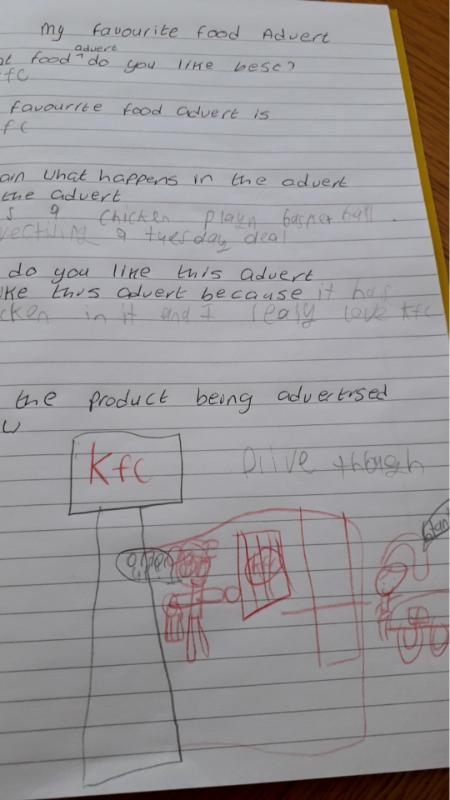 my favourite food Advert
advert
food do you like best?
fc
favourite food advert is
fc
ain what happens in the advert
the advert
s a chicken playn basket ball.
vectiling a tuesday deal
do you like this advert
ike this advert because it has
cken in it and I lealy love kfc
the product being advertised
w
kfc
Drive though
open